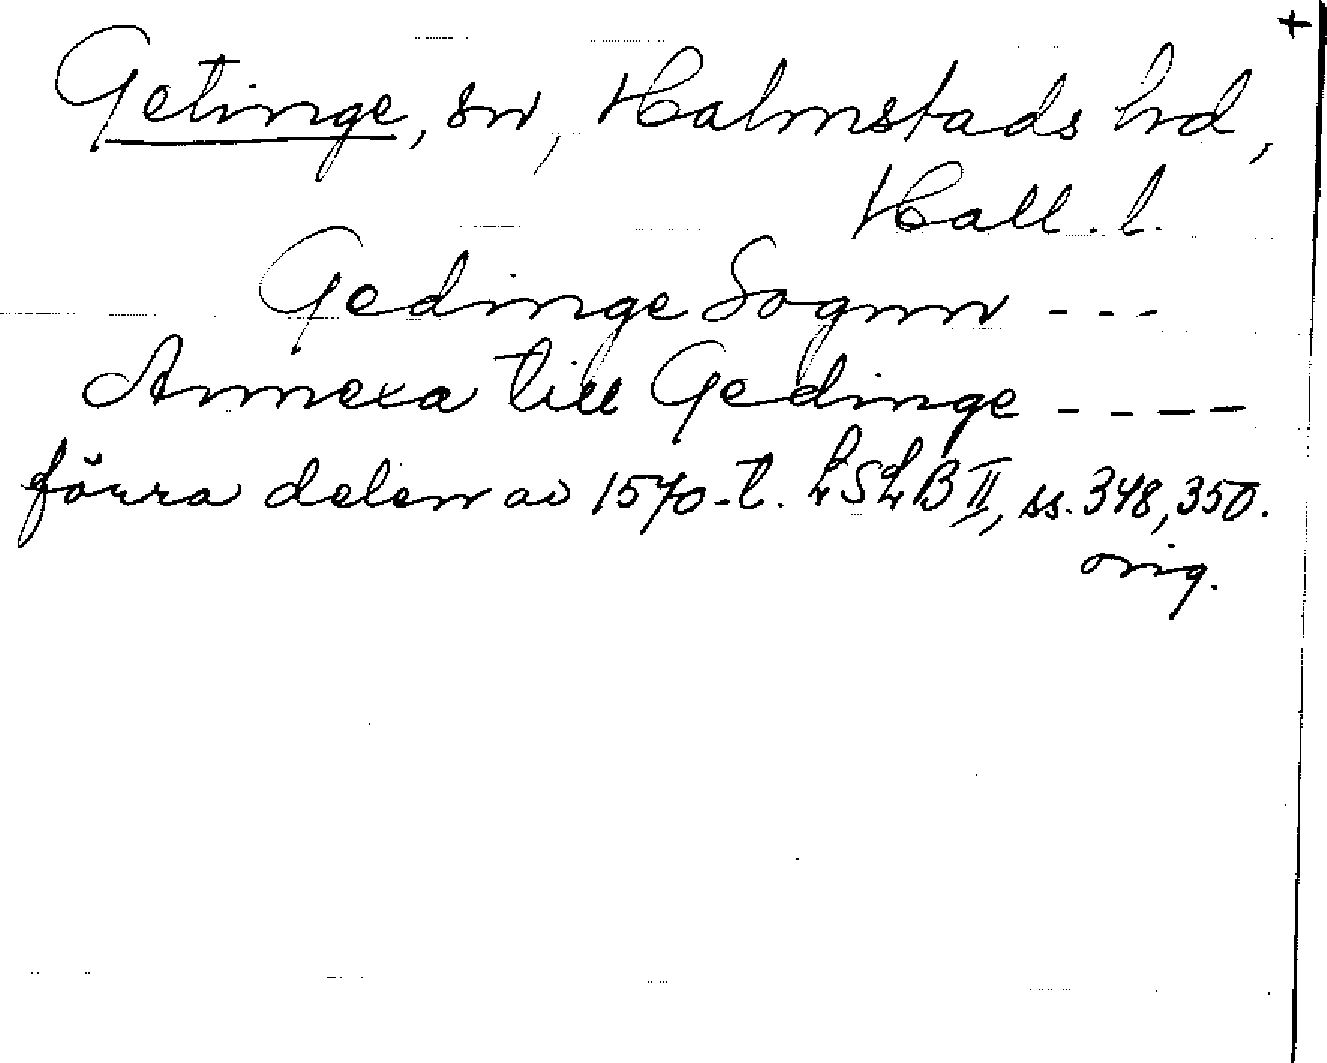 +
Getinge, sn, Halmstads hd,
Hall. l.
Gedinge Sognn ---
Annexa till Gedinge ----
förra delen av 1570-t. LSLB II, ss. 348, 350.
orig.